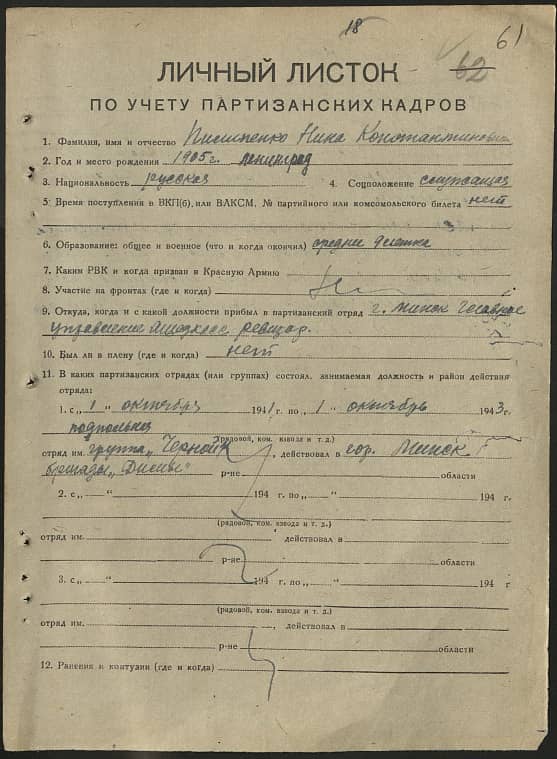 18
61
62
ЛИЧНЫЙ ЛИСТОК
ПО УЧЕТУ ПАРТИЗАНСКИХ КАДРОВ
1. Фамилия, имя и отчество Нина Константиновна
2. Год и место рождения 1905 г. Ленинград
3. Национальность русская 4. Соцположение служащая
5. Время поступления в ВКП(б), или ВЛКСМ, № партийного или комсомольского билета нет
6. Образование: общее и военное (что и когда окончил) средне
7. Каким РВК и когда призван в Красную Армию
8. Участие на фронтах (где и когда)
9. Откуда, когда и с какой должности прибыл в партизанский отряд г. Минск Главное
управление
10. Был ли в плену (где и когда) нет
11. В каких партизанских отрядах (или группах) состоял, занимаемая должность и район действия
отряда:
1. с „ 1 „ октября 1941 г. по „ 1 „ октябрь 1943 г.
подпольная
(рядовой, ком. взвода и т. д.)
отряд им. группа „Черной" , действовал в гор. Минск
бригады „Дяди р-не области
2. с „ — „ 194 г. по „ — „ 194 г.
(рядовой, ком. взвода и т. д.)
отряд им. действовал в
р-не области
3. с „ — „ 194 г. по „ — „ 194 г
(рядовой, ком. взвода и т. д.)
отряд им. , действовал в
р-не области
12. Ранения и контузии (где и когда)